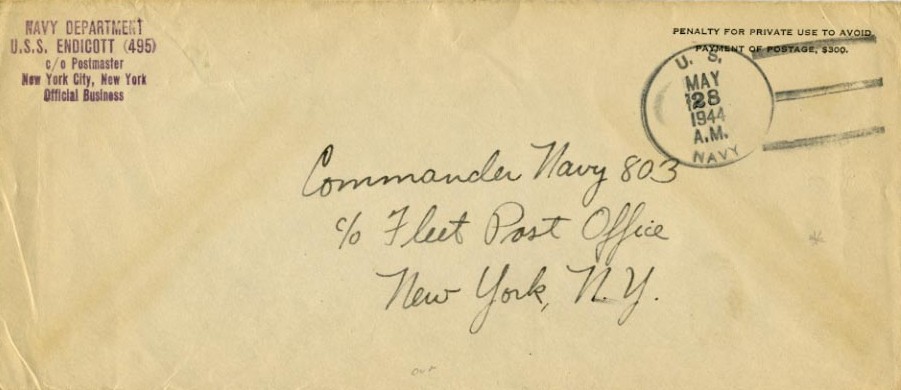 NAVY DEPARTMENT
U.S.S. ENDICOTT (495)
c/o Postmaster
New York City, New York
Official Business
PENALTY FOR PRIVATE USE TO AVOID
PAYMENT OF POSTAGE, $300.
U. S.
MAY
28
1944
A.M.
NAVY
Commander Navy 803
c/o Fleet Post Office
New York, N.Y.